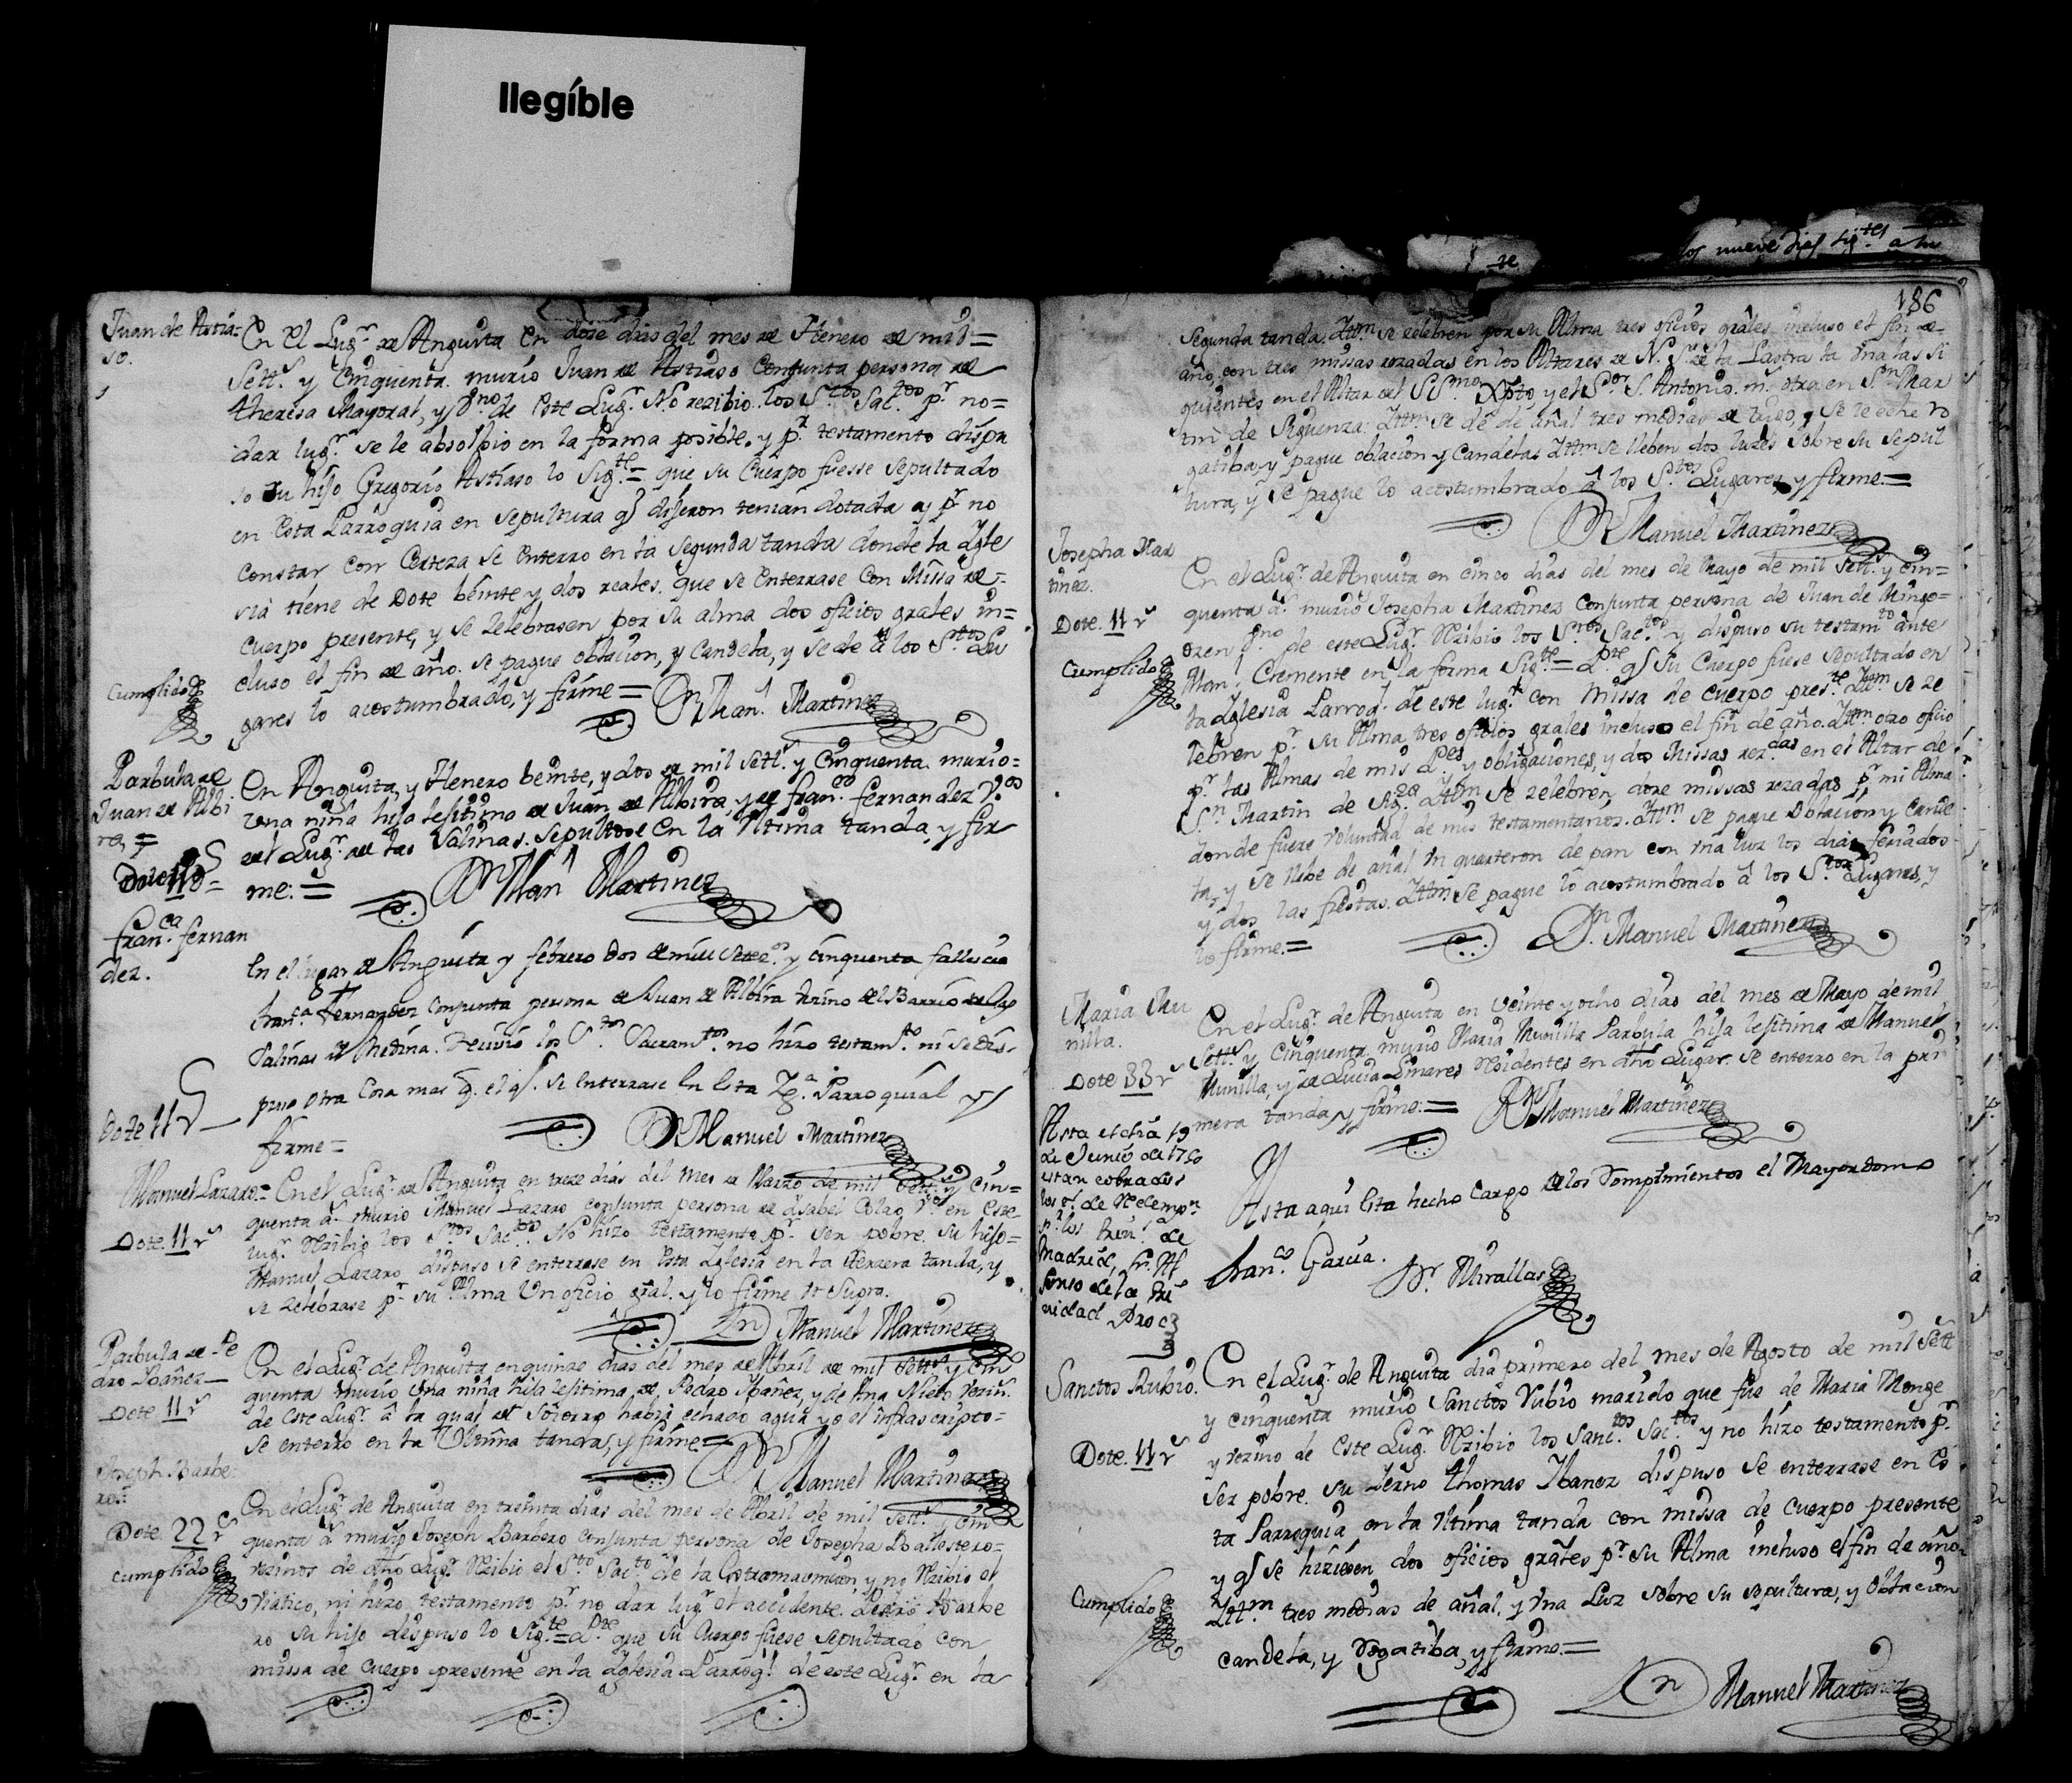 Ilegíble
los nueve dias sig.tes a su
186
Juan de Astia=
so.
En El Lug.r de Anguita en dose dias del mes de Henero de mil=
Sett.s y Cinquenta murio Juan de Astiaso Conjunta persona de
theresa Mayoral, y v.no de Este Lug.r No rezibio los S.tos Sac.tos p.r no=
dar lug.r se le absolbio en la forma posible, y p.r testamento dispu
so su hijo Gregorio Astiaso lo Sig.te= que su Cuerpo fuesse sepultado
en Esta Parroquia en sepultura q dijeron tenian dotada y p.r no
constar con Certeza se Enterro en la segunda tanda donde la Igle
sia tiene de Dote beinte y dos reales. que se Enterrase con Missa de=
cuerpo presente, y se Zelebrasen por su alma dos oficios grales in=
cluso el fin de año. se pague oblacion, y Candela, y se de a los S.tos Lu
Cumplido
gares lo acostumbrado, y firme= D.n Man.l Martinez
Parbula de
Juan de Albi
ra,=
Dote 11 r.s=
En Anguita, y Henero beinte, y dos de mil Sett.s y Cinquenta murio=
una niña hija lejitima de Juan de Albira, y de fran.ca fernandez V.os
del Lug.r de las Salinas. sepultose en la Ultima tanda, y fir
me:= D.n Man.l Martinez
fran.ca fernan
dez.
En el lugar de Anguita y febrero dos de mill Setec.s y cinquenta fallecio
fran.ca Fernandez conjunta persona de Juan de Albira vezino del Barrio de las
Salinas de Medina. Recivio los S.tos Sacram.tos no hizo testam.to ni se dis-
puso otra Cosa mas q. el q. se Enterrase En Esta Ig.a Parroquial y
Dote 11 r.s
firme= D.n Manuel Martinez
Manuel Lazaro.=
En el Lug.r de Anguita en treze dias del Mes de Marzo de mil Sett.s y cin=
quenta a.s Murio Manuel Lazaro conjunta persona de Isabel Colao, V.o en Este
Dote. 11 r.s
lug.r Rezibio los S.tos Sac.tos No hizo testamento p.r ser pobre. su hijo=
Manuel Lazaro dispuso se enterrase en Esta Iglesia en la terzera tanda, y
se Zelebrase p.r su Alma Un oficio gral. y lo firme Vt Supra.
D.n Manuel Martinez
Parbula de Pe
dro Ibañez
Dote 11 r.s
En el Lug.r de Anguita en quinze dias del mes de Abril de mil Sett.s y cin
quenta murio Una niña hija lejitima de, Pedro Ibañez, y de Ana Nieto vezin.s
de Este Lug.r a la qual de socorro habia echado agua yo el infrascripto=
se enterro en la Ultima tanda, y firme=
D.n Manuel Martinez
Joseph Barbe
ro=
Dote. 22 r.s
cumplido
En el Lug.r de Anguita en treinta dias del mes de Abril de mil Sett.s y cin
quenta a.s murio Joseph Barbero conjunta persona de Josepha Ballestero=
vezinos de dho Lug.r Rezibio el S.to Sac.to de la Extremauncion, y no Rezibio el
Viatico, ni hizo testamento p.r no dar lug.r el accidente. Pedro Barbe
ro su hijo dispuso lo sig.te= P.te que su Cuerpo fuese sepultado con
missa de cuerpo presente en la Iglesia Parroq.l de este Lug.r en la
Segunda tanda. Ittm se zelebren por su Alma tres oficios grales incluso el fin de
año, con tres missas rezadas en los Altares de N. S.ra de la Lastra la una las si
guientes en el Altar del SS.mo Xpto y el S.or S. Antonio. m.s otra en S.n Mar
tin de Siguenza: Ittm se de de añal tres medias de trigo, y se le eche ro
gatiba, y pague oblacion y Candelas Ittm se lleben dos luzes sobre su sepul
tura, y se pague lo acostumbrado a los S.tos Lugares, y firme.=
D.n Manuel Martinez
Josepha Mar
tinez.
Dote. 11 r.s
Cumplido
En el Lug.r de Anguita en cinco dias del mes de Mayo de mil Sett.s y cin=
quenta a.s murio Josepha Martinez conjunta persona de Juan de Mingo=
v.no de este Lug.r Rezibio los S.tos Sac.tos y dispuso su testam.to ante
Man.l Cremente en la forma Sig.te= P.te q su Cuerpo fuese sepultado en
la Iglesia Parroq.l de este lug.r con missa de cuerpo pres.te Ittm se ze
lebren p.r su Alma tres oficios grales incluso el fin de año. Ittm otro oficio
p.r las Almas de mis P.es y obligaciones, y dos Missas rez.das en el Altar de
S.n Martin de Sig.za Ittm se zelebren doze missas rezadas p.r mi Alma
donde fuere voluntad de mis testamentarios. Ittm se pague Oblacion y Cande
la, y se llebe de añal un quarteron de pan con una luz los dias feriados
y dos las fiestas. Ittm se pague lo acostumbrado a los S.tos Lugares, y
lo firme.= D.n Manuel Martinez
Maria Mu
nilla.
Dote 33 r.s
En el Lug.r de Anguita en veinte y ocho dias del mes de Mayo de mil
Sett.s y Cinquenta murio Maria Munilla Parbula hija lejitima de Manuel
Munilla, y de Lucia Linares Residentes en dho Lugar. se enterro en la pri
mera tanda, y firme.= D.n Manuel Martinez
Asta el dia 19
de Junio de 1750
estan cobrados
los r.s de Redemp.n
p.r los trin.s de
Madrid, fr. Al
fonso de la tri
nidad Proc.
Asta aqui Esta hecho Cargo de los Rompimientos el Mayordomo
fran.co Garcia.
D.r Mirallas
Sanctos Rubio.
Dote. 11 r.s
Cumplido
En el Lug.r de Anguita dia primero del mes de Agosto de mil Sett
y cinquenta murio Sanctos Rubio marido que fue de Maria Monge
y vezino de Este Lug.r Rezibio los Sanc.tos Sac.tos y no hizo testamento p.r
ser pobre. su Yerno Thomas Ibanez dispuso se enterrase en Es
ta Parroquia en la Ultima tanda con missa de cuerpo presente
y q se hiziesen dos oficios grales p.r su Alma incluso el fin de año
Ittm tres medias de añal, y Una Luz sobre su sepultura, y oblacion
candela, y Rogatiba, y firme.=
D.n Manuel Martinez